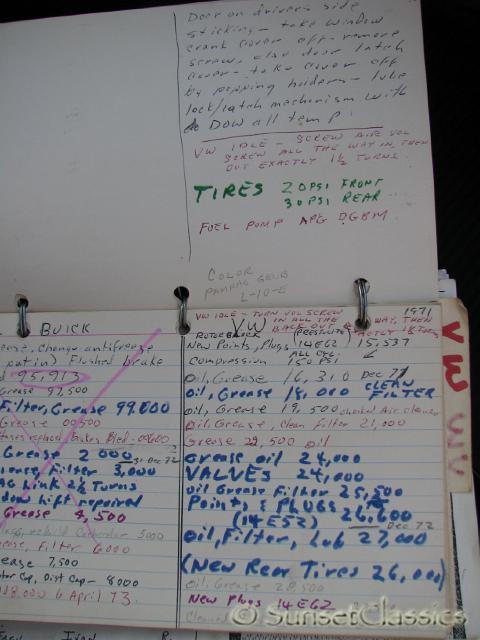 Door on drivers side
sticking - take window
crank cover off - remove
screw, also door latch
cover - take cover off
by popping holders - lube
lock/latch mechanism with
DOW all temp!
VW IDLE - SCREW AIR VOL
SCREW ALL THE WAY IN, THEN
OUT EXACTLY 1½ TURNS.
TIRES 20 PSI FRONT
30 PSI REAR
FUEL PUMP APG DGBM
COLOR
PAMPAS GELB
L-10-E
BUICK
ease, change antifreeze
Flushed brake
95,913
Grease 97,500
Filter, Grease 99.000
Grease 00500
Bled - 00600
Grease 2 000 31 Dec 72
Filter 3,000
Link 2½ Turns
repaired
Grease 4,500
rebuild Carburetor 5000
ease, Filter 6000
ease 7,500
Cap, Dist Cap - 8000
6 April 73.
VW IDLE - TURN VOL SCREW
IN ALL THE WAY, THEN
BACK OUT EXACTLY 1½ TURNS
VW 1971
New Points, Plugs (14E62) 15,537
Compression ALL CYL. 130 PSI
Oil, Grease 16,310 Dec 71
oil, Grease 18,000 CLEAN FILTER
oil, Grease 19,500 checked Air Cleaner
Oil, Grease, Clean Filter 21,000
Grease 22,500 oil
Grease oil 24,000
VALVES 24,000
oil Grease Filter 25,500
Points & PLUGS
(14E52) 26,600
Dec. 72
oil, Filter, Lub 27,000
(New Rear Tires 26,000)
Oil, Grease 28,500
New Plugs 14E62
VW
© SunsetClassics